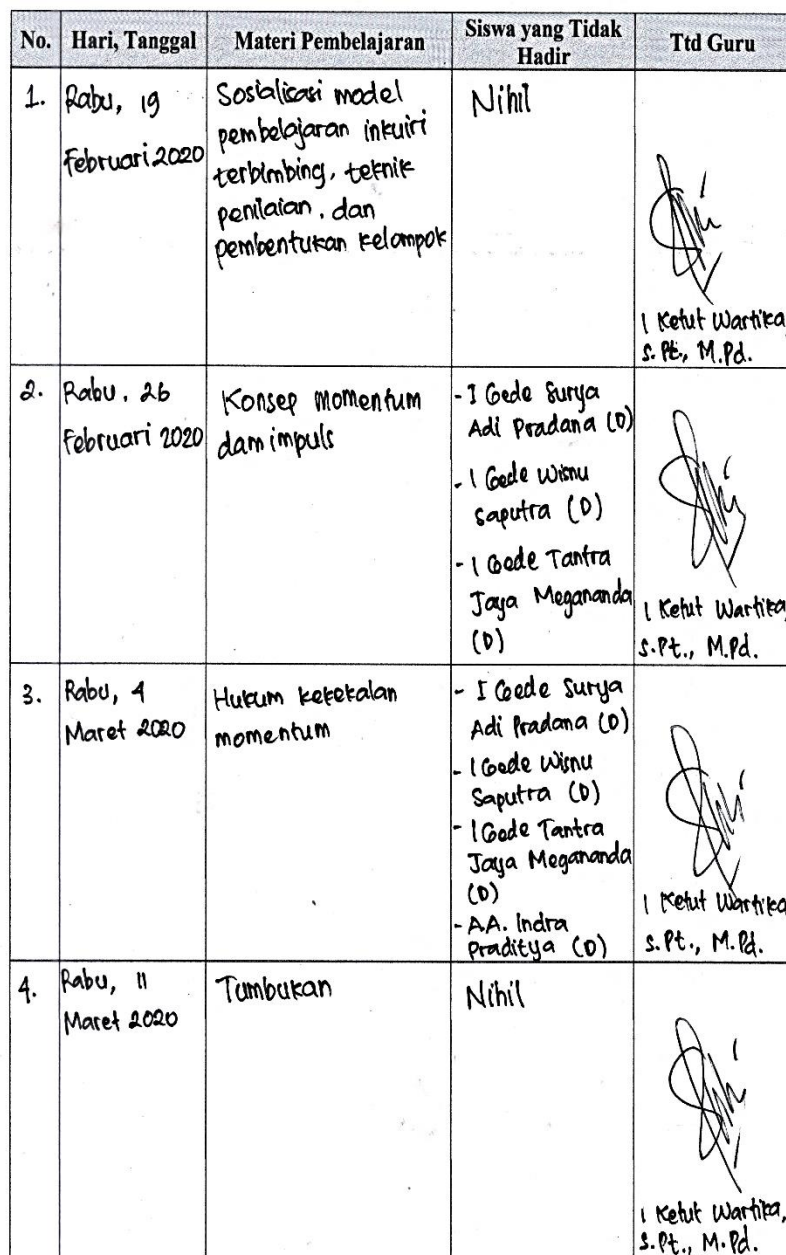 No. Hari, Tanggal Materi Pembelajaran Siswa yang Tidak Hadir Ttd Guru
1. Rabu, 19
Februari 2020
Sosialisasi model
pembelajaran inkuiri
terbimbing, teknik
penilaian, dan
pembentukan kelompok
Nihil
I Ketut Wartika,
S.Pt., M.Pd.
2. Rabu, 26
Februari 2020
Konsep momentum
dam impuls
- I Gede Surya
Adi Pradana (D)
- I Gede Wisnu
Saputra (D)
- I Gede Tantra
Jaya Megananda
(D)
I Ketut Wartika,
S.Pt., M.Pd.
3. Rabu, 4
Maret 2020
Hukum kekekalan
momentum
- I Gede Surya
Adi Pradana (D)
- I Gede Wisnu
Saputra (D)
- I Gede Tantra
Jaya Megananda
(D)
- AA. Indra
Praditya (D)
I Ketut Wartika,
S.Pt., M.Pd.
4. Rabu, 11
Maret 2020
Tumbukan
Nihil
I Ketut Wartika,
S.Pt., M.Pd.